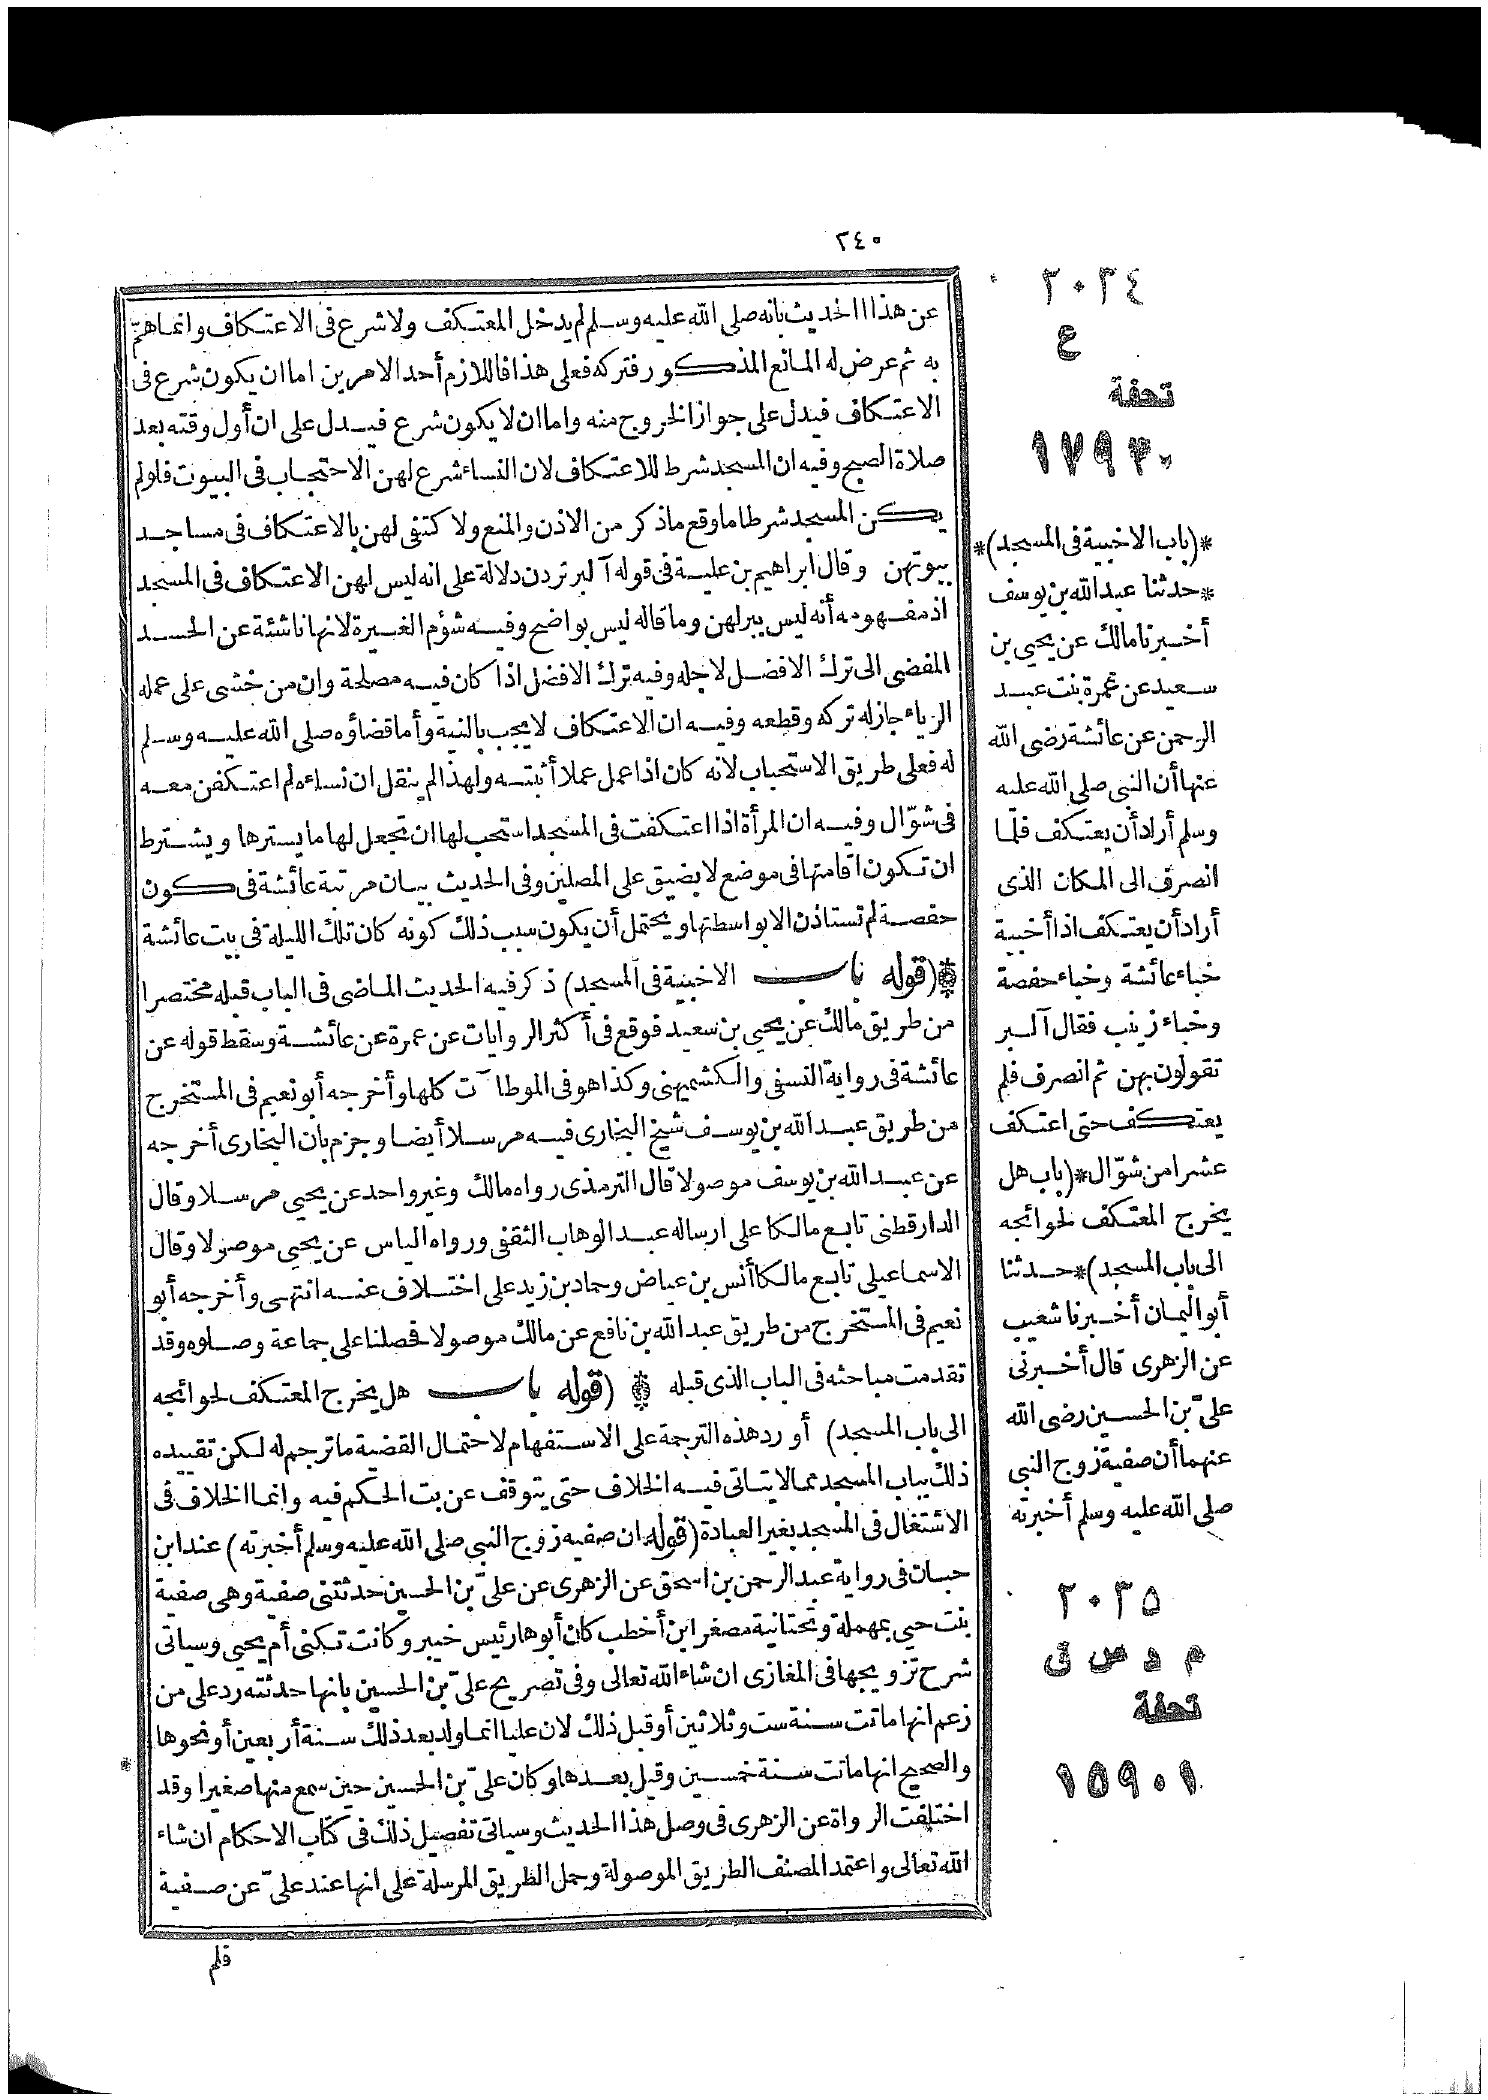 ٢٤٠
عن هذا الحديث بانه صلى الله عليه وسلم لم يدخل المعتكف ولا شرع فى الاعتكاف وانما همّ
به ثم عرض له المانع المذكور فتركه فعلى هذا فاللازم أحد الامرين اما ان يكون شرع فى
الاعتكاف فيدل على جواز الخروج منه واما ان لا يكون شرع فيدل على ان أول وقته بعد
صلاة الصبح وفيه ان المسجد شرط للاعتكاف لان النساء شرع لهن الاحتجاب فى البيوت فلو لم
يكن المسجد شرطا ما وقع ما ذكر من الاذن والمنع ولا كتفى لهن بالاعتكاف فى مساجد
بيوتهن وقال ابراهيم بن علية فى قوله آلبر تردن دلالة على انه ليس لهن الاعتكاف فى المسجد
اذ مفهومه أنه ليس ببر لهن وما قاله ليس بواضح وفيه شؤم الغيرة لانها ناشئة عن الحسد
المفضى الى ترك الافضل لاجله وفيه ترك الافضل اذا كان فيه مصلحة وان من خشى على عمله
الرياء جاز له تركه وقطعه وفيه ان الاعتكاف لا يجب بالنية وأما قضاؤه صلى الله عليه وسلم
له فعلى طريق الاستحباب لانه كان اذا عمل عملا أثبته ولهذا لم ينقل ان نساءه لم اعتكفن معه
فى شوّال وفيه ان المرأة اذا اعتكفت فى المسجد استحب لها ان تجعل لها ما يسترها ويشترط
ان تكون اقامتها فى موضع لا يضيق على المصلين وفى الحديث بيان مرتبة عائشة فى كون
حفصة لم تستاذن الا بواسطتها ويحتمل أن يكون سبب ذلك كونه كان تلك الليلة فى بيت عائشة
(قوله باب الاخبية فى المسجد) ذكر فيه الحديث الماضى فى الباب قبله مختصرا
من طريق مالك عن يحيى بن سعيد فوقع فى أكثر الروايات عن عمرة عن عائشة وسقط قوله عن
عائشة فى رواية النسفى والكشميهنى وكذا هو فى الموطآت كلها وأخرجه أبو نعيم فى المستخرج
من طريق عبد الله بن يوسف شيخ البخارى فيه مرسلا أيضا وجزم بان البخارى أخرجه
عن عبد الله بن يوسف موصولا قال الترمذى رواه مالك وغير واحد عن يحيى مرسلا وقال
الدارقطنى تابع مالكا على ارساله عبد الوهاب الثقفى ورواه الياس عن يحيى موصولا وقال
الاسماعيلى تابع مالكا أنس بن عياض وحماد بن زيد على اختلاف عنه انتهى وأخرجه أبو
نعيم فى المستخرج من طريق عبد الله بن نافع عن مالك موصولا فحصلنا على جماعة وصلوه وقد
تقدمت مباحثه فى الباب الذى قبله (قوله باب هل يخرج المعتكف لحوائجه
الى باب المسجد) أورد هذه الترجمة على الاستفهام لاحتمال القضية ما ترجم له لكن تقييده
ذلك بباب المسجد مما لا يتاتى فيه الخلاف حتى يتوقف عن بت الحكم فيه وانما الخلاف فى
الاشتغال فى المسجد بغير العبادة (قوله ان صفيه زوج النبى صلى الله عليه وسلم أخبرته) عند ابن
حبان فى رواية عبد الرحمن بن اسحق عن الزهرى عن علىّ بن الحسين حدثتنى صفية وهى صفية
بنت حيى بمهملة وتحتانية مصغر ابن أخطب كان أبوها رئيس خيبر وكانت تكنى أم يحيى وسياتى
شرح تزويجها فى المغازى ان شاء الله تعالى وفى تصريح علىّ بن الحسين بانها حدثته رد على من
زعم انها ماتت سنة ست وثلاثين أو قبل ذلك لان عليا انما ولد بعد ذلك سنة أربعين أو نحوها
والصحيح انها ماتت سنة خمسين وقيل بعدها وكان علىّ بن الحسين حين سمع منها صغيرا وقد
اختلفت الرواة عن الزهرى فى وصل هذا الحديث وسياتى تفصيل ذلك فى كتاب الاحكام ان شاء
الله تعالى واعتمد المصنف الطريق الموصولة وحمل الطريق المرسلة على انها عند علىّ عن صفية
فلم
٢٠٣٤
ع
تحفة
١٧٩٣٠
*(باب الاخبية فى المسجد)*
*حدثنا عبد الله بن يوسف
أخبرنا مالك عن يحيى بن
سعيد عن عمرة بنت عبد
الرحمن عن عائشة رضى الله
عنها أن النبى صلى الله عليه
وسلم أراد أن يعتكف فلما
انصرف الى المكان الذى
أراد أن يعتكف اذا أخبية
خباء عائشة وخباء حفصة
وخباء زينب فقال آلبر
تقولون بهن ثم انصرف فلم
يعتكف حتى اعتكف
عشرا من شوّال *(باب هل
يخرج المعتكف لحوائجه
الى باب المسجد)* حدثنا
أبو اليمان أخبرنا شعيب
عن الزهرى قال أخبرنى
علىّ بن الحسين رضى الله
عنهما أن صفية زوج النبى
صلى الله عليه وسلم أخبرته
٢٠٣٥
م د س ق
تحفة
١٥٩٠١